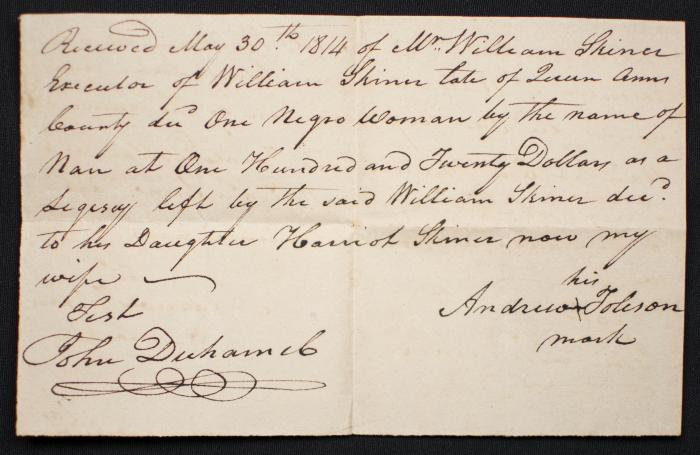 Received May 30.th 1814 of Mr. William Skiner
Executor of William Skiner late of Queen Anns
County decd One Negro Woman by the name of
Nan at One Hundred and Twenty Dollars as a
Legesey left by the said William Skiner decd.
to his Daughter Harriot Skiner now my
wife
his
Test
Andrew x Toleson
mark
John Duhamel